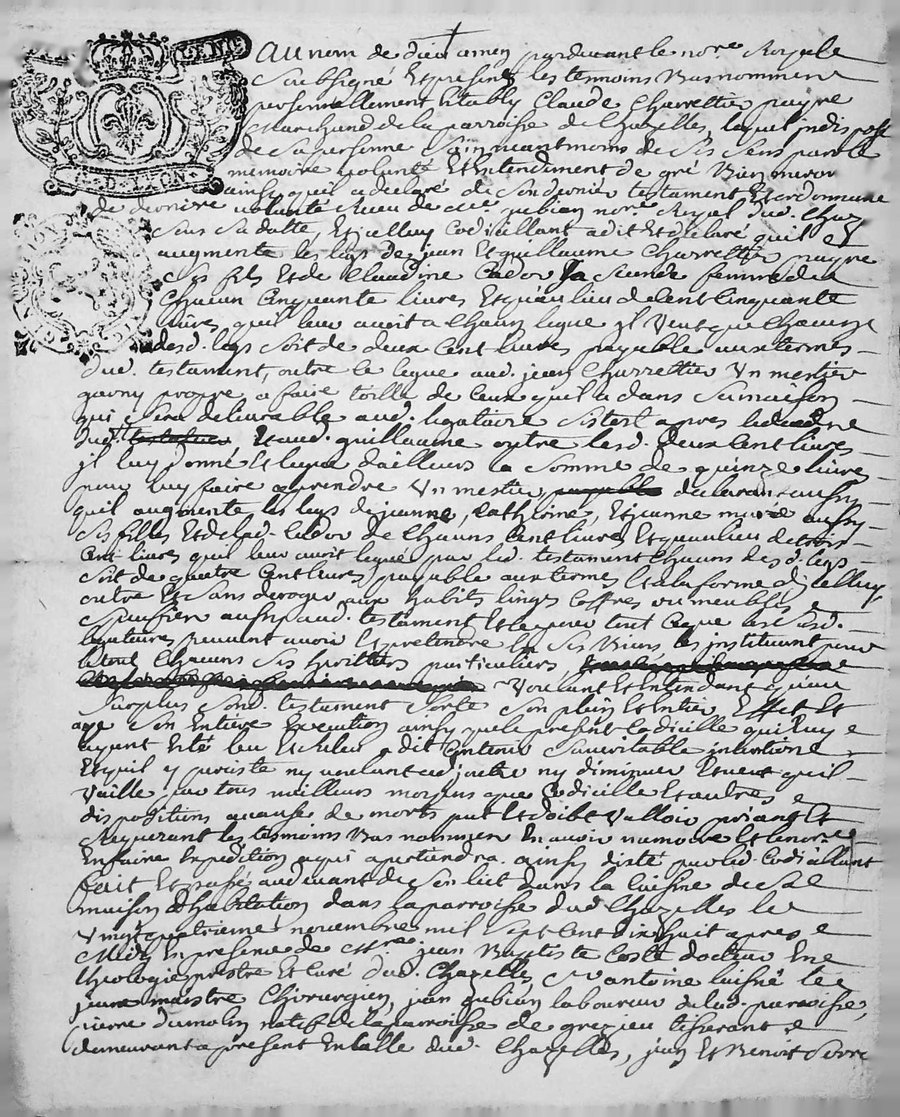 GEN
G. D. LYON
Au nom de dieu amen pardevant le nore. Royal
Soubsigné Et présents les temoins Bas nommes
personnellement Estably Claude Charrettier payre
Marchand de la parroisse de Chazelles, lequel indisposé
de sa personne Sain neantmoins de ses sens parolle
memoire volunté Et Entendement de gré Bien meu
ainsy quil a declaré de Son dernier testament Et ordonnance
de derniere volunté Receu de me. jubian nore. Royal dud. Chaz
Sous Sa datte, Et icelluy Codicillant a dit Et declaré quil
augmente les legs de jean Et guillaume Charrettier payre
Ses fils Et de Claudine Cador la Siende femme de
Chacun Cinquante livres Et quau lieu de Cent Cinquante
livres quil leur avoit a Chacun legué jl Veut que Chacun
desd. legs soit de deux Cent livres payable aux termes
dud. testament, outre le legue aud. jean Charrettier Un mestier
garny propre a faire toille de Ceux quil a dans Sa maison
qui Sera delivrable aud. legataire Sistost apres le
dud. Et aud. guillaume outre lesd. deux Cent livres
jl luy donne Et legue dailleurs la Somme de quinze livres
pour luy faire aprendre Un mestier, declarant aussy
quil augmente les legs de jeanne, Catherine, Et jeanne marie aussy
Ses filles Et de lad. Cador de Chacuns Cent livres Et quau lieu de trois
Cent livres quil leur avoit legué par led. testament Chacuns desd. legs
soit de quatre Cent livres payable aux termes Et a la forme dicelluy,
outre Et Sans deroger aux habits linges Coffres ou meubles
Specifiés aussy aud. testament Et Ce pour tout Ce que lesd.
legataires peuvent avoir Et pretendre En Ses Biens, les instituant pour
le tout Chacuns Ses heritiers particuliers
Voulant Et Entendant quau
Surplus Sond. testament Sorte Son plein Et Entier Effet Et
aye Son Entiere Execution ainsy que le present Codicille qui luy
ayant Eté leu Et releu a dit Contenir Sa veritable intention
Et quil y persiste ny voulant adjouter ny diminuer Et veut quil
Vaille par tous meilleurs moyens que Codicille Et autres
dispositions a cause de mort peut Et doibt Valloir priant Et
Requerant les temoins Bas nommes En avoir memoire Et le nore.
En faire Expedition a qui apartiendra. ainsy dicté par led. Codicillant
fait Et passé audevant de Son lict dans la Cuisine de Sa
maison D'habitation dans la parroisse dud. Chazelles le
Vingt quatrieme novembre mil Sept Cent dix huit apres
Midy En presence de Mre. jean Baptiste Coste docteur En
theologie prestre Et Curé dud. Chazelles, Sr. antoine le
jeune maistre Chirurgien, jean jubian laboureur de lad. parroisse,
pierre dumolin natif de la parroisse de grezieu tisserant
demeurant a present En Ville dud. Chazelles, jean Et Benoit